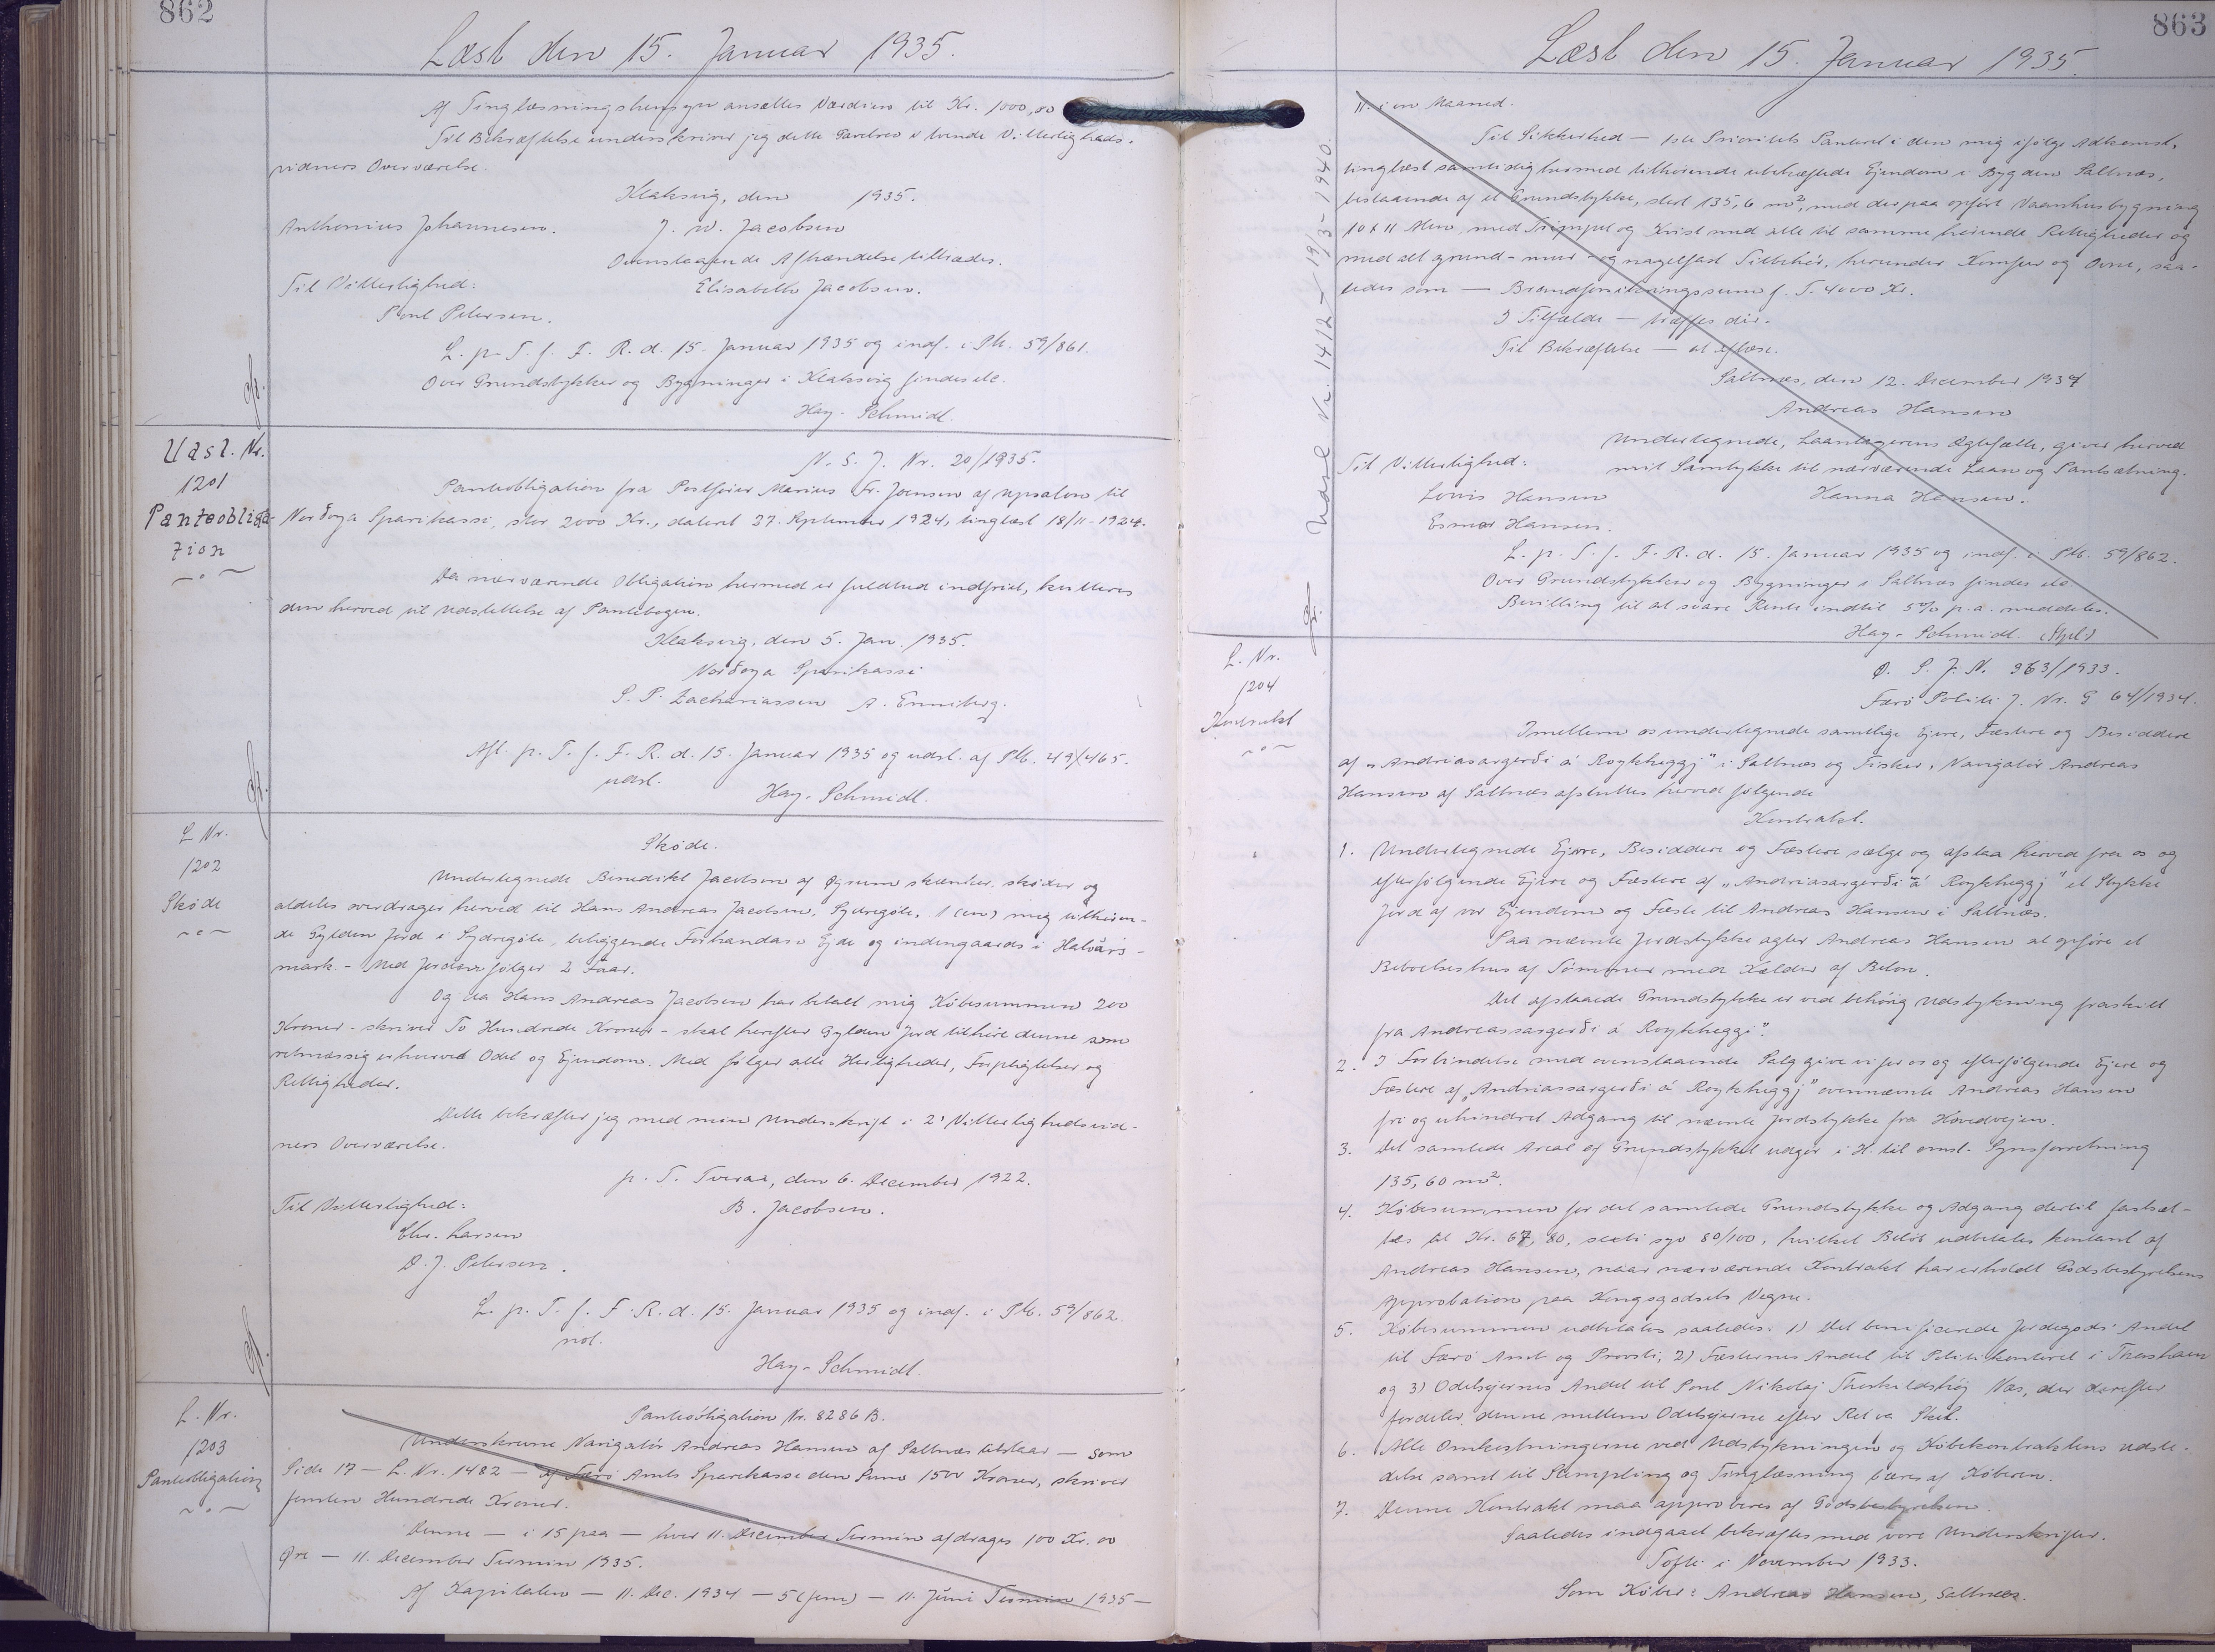 862
Læst den 15. Januar 1935.
Af Tinglæsningshensyn ansættes Værdien til Kr. 1000,00
Til Bekræftelse underskriver jeg dette Gavebrev i tvende Vitterligheds-
vidners Overværelse.
Klaksvig, den 1935.
Anthonius Johannesen. J. W. Jacobsen
Ovenstaaende Afhændelse tiltrædes.
Til Vitterlighed: Elisabeth Jacobsen.
Poul Petersen.
L. p. T. f. F. R. d. 15. Januar 1935 og indf. i Ptb. 59/861.
Over Grundstykker og Bygninger i Klaksvig findes etc.
Hay-Schmidt.
Udsl. Nr.
1201
Panteobliga-
tion
N. S. J. Nr. 20/1935.
Panteobligation fra Postfører Marius Fr. Joensen af Upsalen til
Norðoya Sparikassi, stor 2000 Kr., dateret 27. September 1924, tinglæst 18/11-1924.
Da nærværende Obligation hermed er fuldtud indfriet, kvitteres
den herved til Udslettelse af Pantebogen.
Klaksvig, den 5. Jan. 1935.
Norðoya Sparikassi
S. P. Zachariassen A. Enniberg.
Afl. p. T. f. F. R. d. 15. Januar 1935 og udsl. af Ptb. 49/465.
udsl.
Hay-Schmidt.
L Nr.
1202
Skøde
Skøde.
Undertegnede Benedikt Jacobsen af skøder og
aldeles overdrager herved til Hans Andreas Jacobsen, Sydregöte, 1 (en) mig tilhøren-
de Gylden Jord i Sydregöte, beliggende Forhandaso Eje og indengaards i Halvärs-
mark. - Med Jorden følger 2 Faar.
Og da Hans Andreas Jacobsen har betalt mig Købesummen 200
Kroner - skriver To Hundrede Kroner - skal herefter Gylden Jord tilhøre denne som
retmæssig erhvervet Odel og Ejendom. Med følger alle Herligheder, Forpligtelser og
Rettigheder.
Dette bekræfter jeg med min Underskrift i 2' Vitterlighedsvid-
ners Overværelse.
p. T. Tveraa, den 6. December 1922.
Til Vitterlighed: B. Jacobsen.
Chr. Larsen
D. J. Petersen.
L. p. T. f. F. R. d. 15. Januar 1935 og indf. i Ptb. 59/862.
not.
Hay-Schmidt.
L. Nr.
1203
Panteobligation
Panteobligation Nr. 8286 B.
Underskrevne Navigatör Andreas Hansen af Saltnæs tilstaar — som
Side 17 — L. Nr. 1482 — af Færö Amts Sparekasse den Sum 1500 Kroner, skriver
femten Hundrede Kroner.
Denne — i 15 paa — hver 11. December Termin afdrages 100 Kr. 00
Øre — 11. December Termin 1935.
Af Kapitalen — 11. Dec. 1934 — 5 (fem) — 11. Juni Termin 1935 —
863
Læst den 15. Januar 1935.
11. i en Maaned.
Til Sikkerhed — 1ste Prioritets Panteret i den mig ifölge Adkomst,
tinglæst samtidig hermed tilhørende ubehæftede Ejendom i Bygden Saltnæs,
bestaaende af et Grundstykke, stort 135,6 m², med derpaa opfört Vaaningsbygning
10 x 11 Alen, med Trempel og Kvist med alle til samme hörende Rettigheder og
med alt grund-mur-og nagelfast Tilbehör, herunder Komfur og Ovne, saa-
ledes som — Brandforsikringssum f. T. 4000 Kr.
I Tilfælde — træffes dér.
Til Bekræftelse — at aflæse.
Saltnæs, den 12. December 1934
Andreas Hansen
Undertegnede, Laantagerens Ægtefælle, giver herved
Til Vitterlighed: mit Samtykke til nærværende Laan og Pantsætning.
Louis Hansen Hanna Hansen.
Esmar Hansen.
L. p. T. f. F. R. d. 15. Januar 1935 og indf. i Ptb. 59/862.
Over Grundstykker og Bygninger i Saltnæs findes etc.
Bevilling til at svare Rente indtil 5% p.a. meddeles.
Hay-Schmidt.
Udsl. Nr. 1412 - 19/3-1940.
L. Nr.
1204
Kontrakt
Ø. S. J. N. 363/1933.
Færö Politi J. Nr. G 64/1934.
Imellem os undertegnede samtlige Ejere, Fæstere og Besiddere
af „Andriasargerði á Roykheggj" i Saltnæs og Fisker, Navigatör Andreas
Hansen af Saltnæs afsluttes herved følgende
Kontrakt.
1. Undertegnede Ejere, Besiddere og Fæstere sælge og afstaa herved fra os og
efterfølgende Ejere og Fæstere af „Andriasargerði á Roykheggj" et Stykke
Jord af vor Ejendom og Fæste til Andreas Hansen i Saltnæs.
Paa nævnte Jordstykke agter Andreas Hansen at opføre et
Beboelseshus af Tömmer med Kælder af Beton.
Det afstaaede Grundstykke er ved behörig Udstykning fraskilt
fra Andreassargerði á Roykheggi".
2. I Forbindelse med ovenstaaende Salg give vi for os og efterfølgende Ejere og
Fæstere af „Andriassargerði á Roykheggj" ovennævnte Andreas Hansen
fri og uhindret Adgang til nævnte Jordstykke fra Hovedvejen.
3. Det samlede Areal af Grundstykket udgør i H. til omst. Synsforretning
135,60 m².
4. Købesummen for det samlede Grundstykke og Adgang dertil fastsæt-
tes til Kr. 67,80, seksti syv 80/100, hvilket Beløb udbetales kontant af
Andreas Hansen, naar nærværende Kontrakt har erholdt Godsbestyrelsens
Approbation paa Kongsgodsets Vegne.
5. Købesummen udbetales saaledes: 1) Det beneficerede Jordegods' Andel
til Færö Amt og Provsti, 2) Fæsternes Andel til Politikontoret i Thorshavn
og 3) Odelsejernes Andel til Poul Nikolaj Thorkildshöj Næs, der derefter
fordeler denne mellem Odelsejerne efter Ret og Skel.
6. Alle Omkostningerne ved Udstykningen og Købekontraktens udste-
delse samt til Stempling og Tinglæsning bæres af Køberen.
7. Denne Kontrakt maa approberes af Godsbestyrelsen.
Saaledes indgaaet bekræftes med vore Underskrifter.
Tofte i November 1933.
Som Køber: Andreas Hansen, Saltnæs.